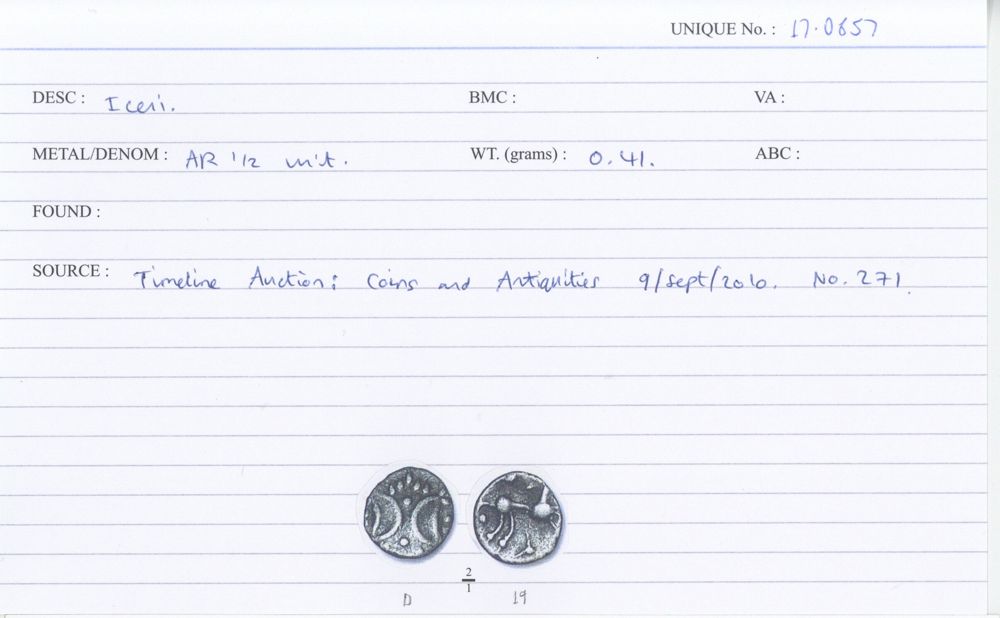 UNIQUE No. : 17.0657
DESC : Iceni. BMC : VA :
METAL/DENOM : AR 1/2 unit. WT. (grams) : 0.41. ABC :
FOUND :
SOURCE : Timeline Auction: Coins and Antiquities 9/Sept/2010. No. 271.
2
1
D 19